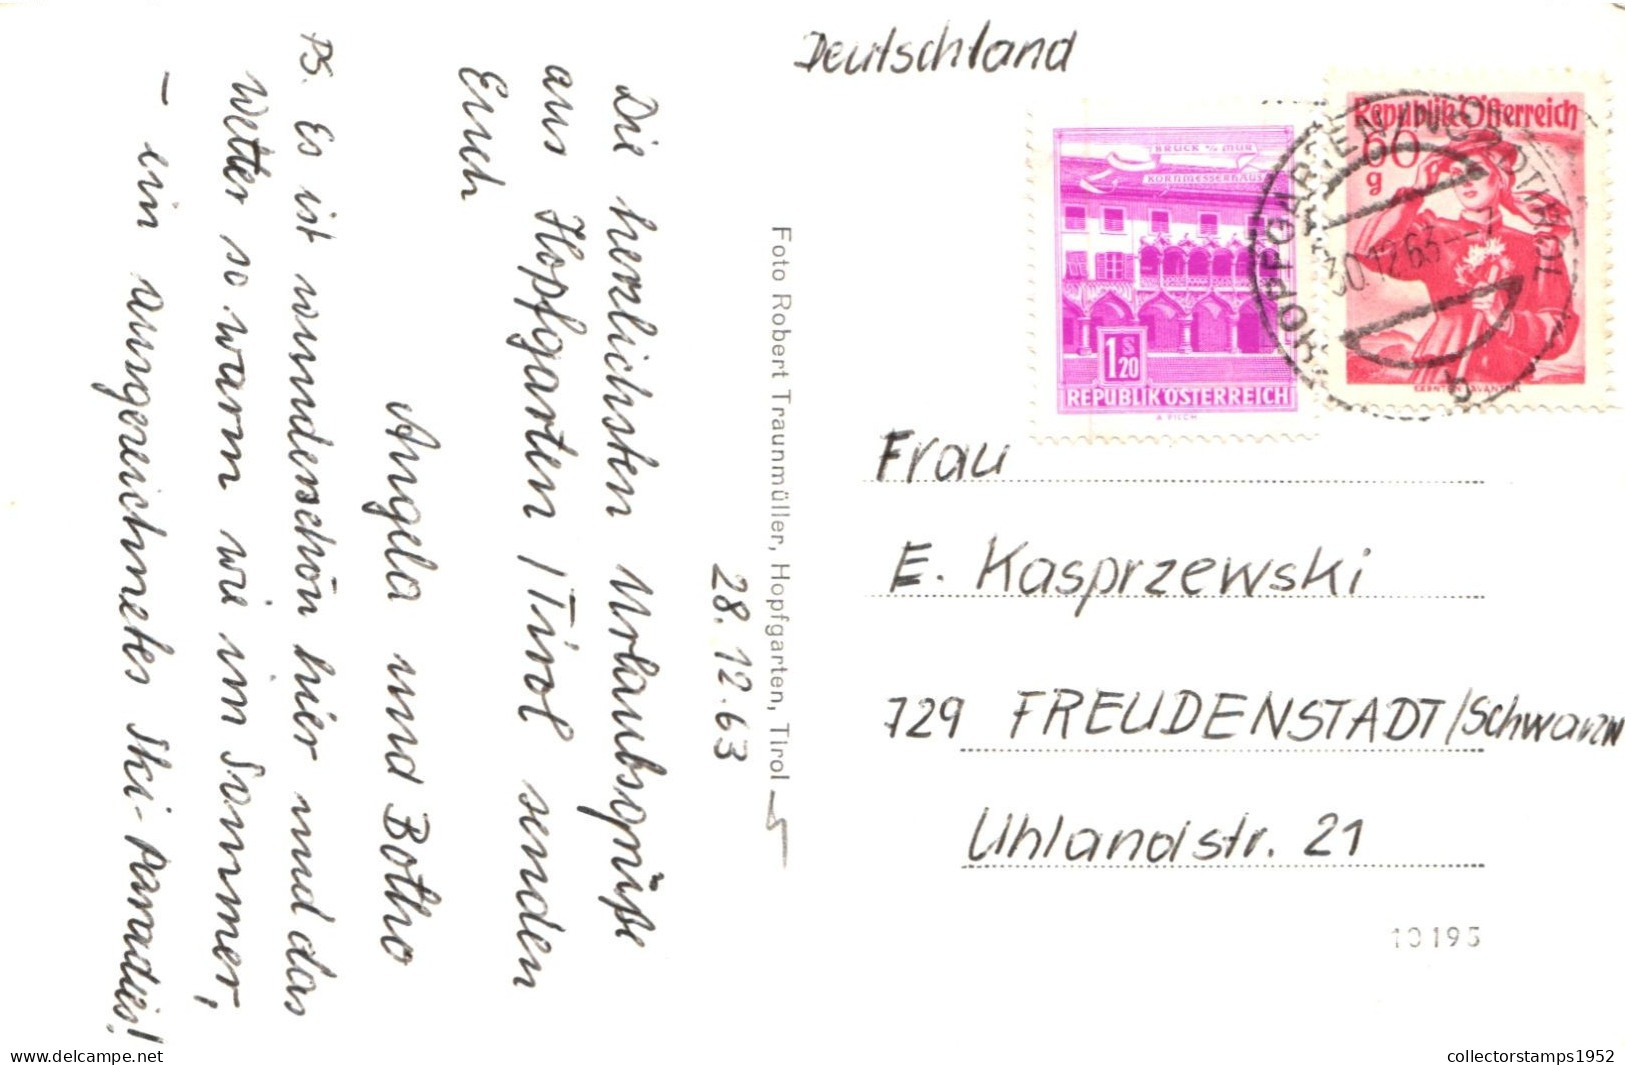 28.12.63
Die herzlichsten Urlaubsgrüße
aus Hopfgarten / Tirol senden
Euch
Angela und Botho
PS. Es ist wunderschön hier und das
Wetter so warm wie im Sommer,
– ein ausgezeichnetes Ski-Paradies!
Foto Robert Traunmüller, Hopfgarten, Tirol
Deutschland
BRUCK a/d MUR
KORNMESSERHAUS
1 S 20
REPUBLIK ÖSTERREICH
A. PILCH
Republik Österreich
60
g
KÄRNTEN LAVANTTAL
HOPFGARTEN
30.12.63
b
Frau
E. Kasprzewski
729 FREUDENSTADT/Schwarzw
Uhlandstr. 21
10195
collectorstamps1952